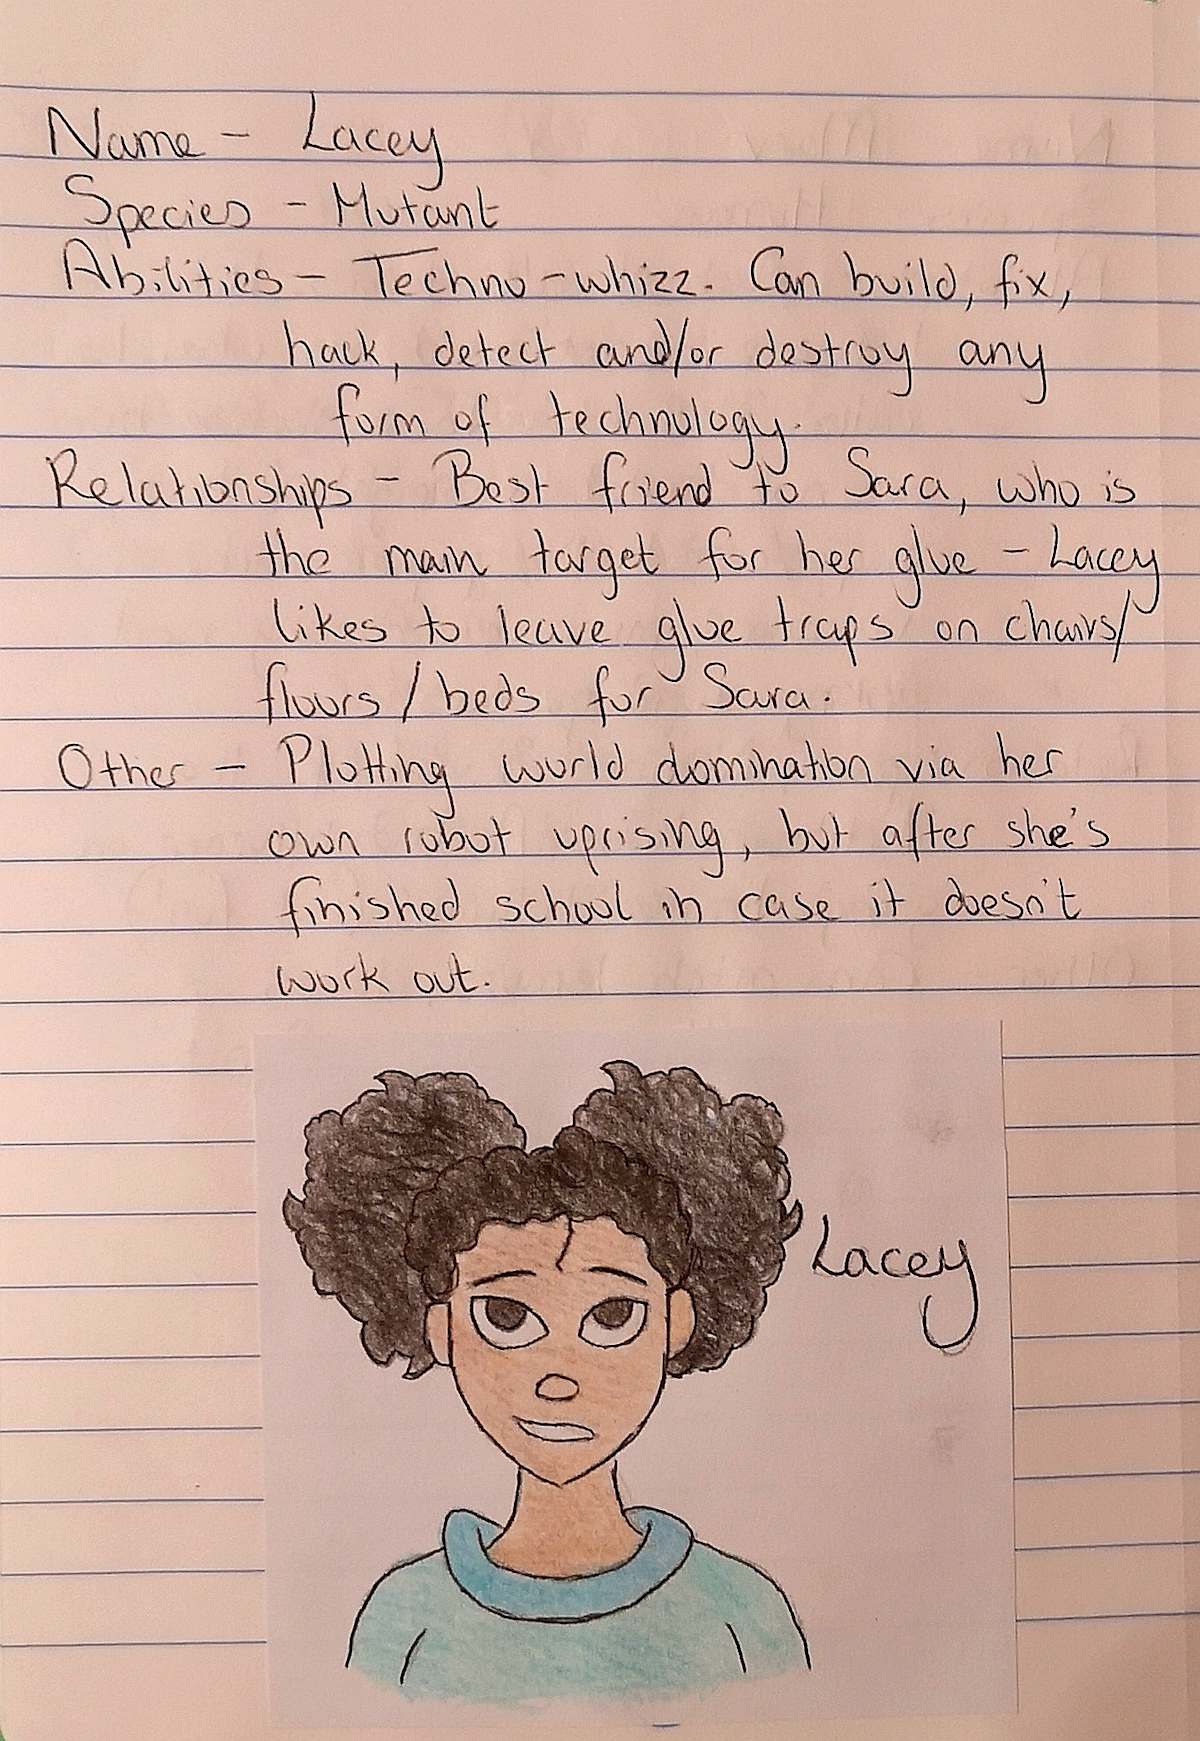 Name - Lacey
Species - Mutant
Abilities - Techno-whizz. Can build, fix,
hack, detect and/or destroy any
form of technology.
Relationships - Best friend to Sara, who is
the main target for her glue - Lacey
likes to leave glue traps on chairs/
floors/beds for Sara.
Other - Plotting world domination via her
own robot uprising, but after she's
finished school in case it doesn't
work out.
Lacey